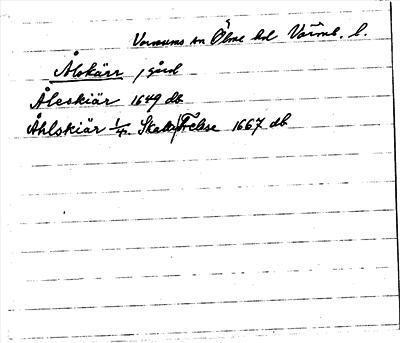 Varnums sn Ölme hd Värml. l.
Ålskärr 1 gård
Åleskiär 1649 db
Åhlskiär 1/4. Skatte Frälse 1667 db